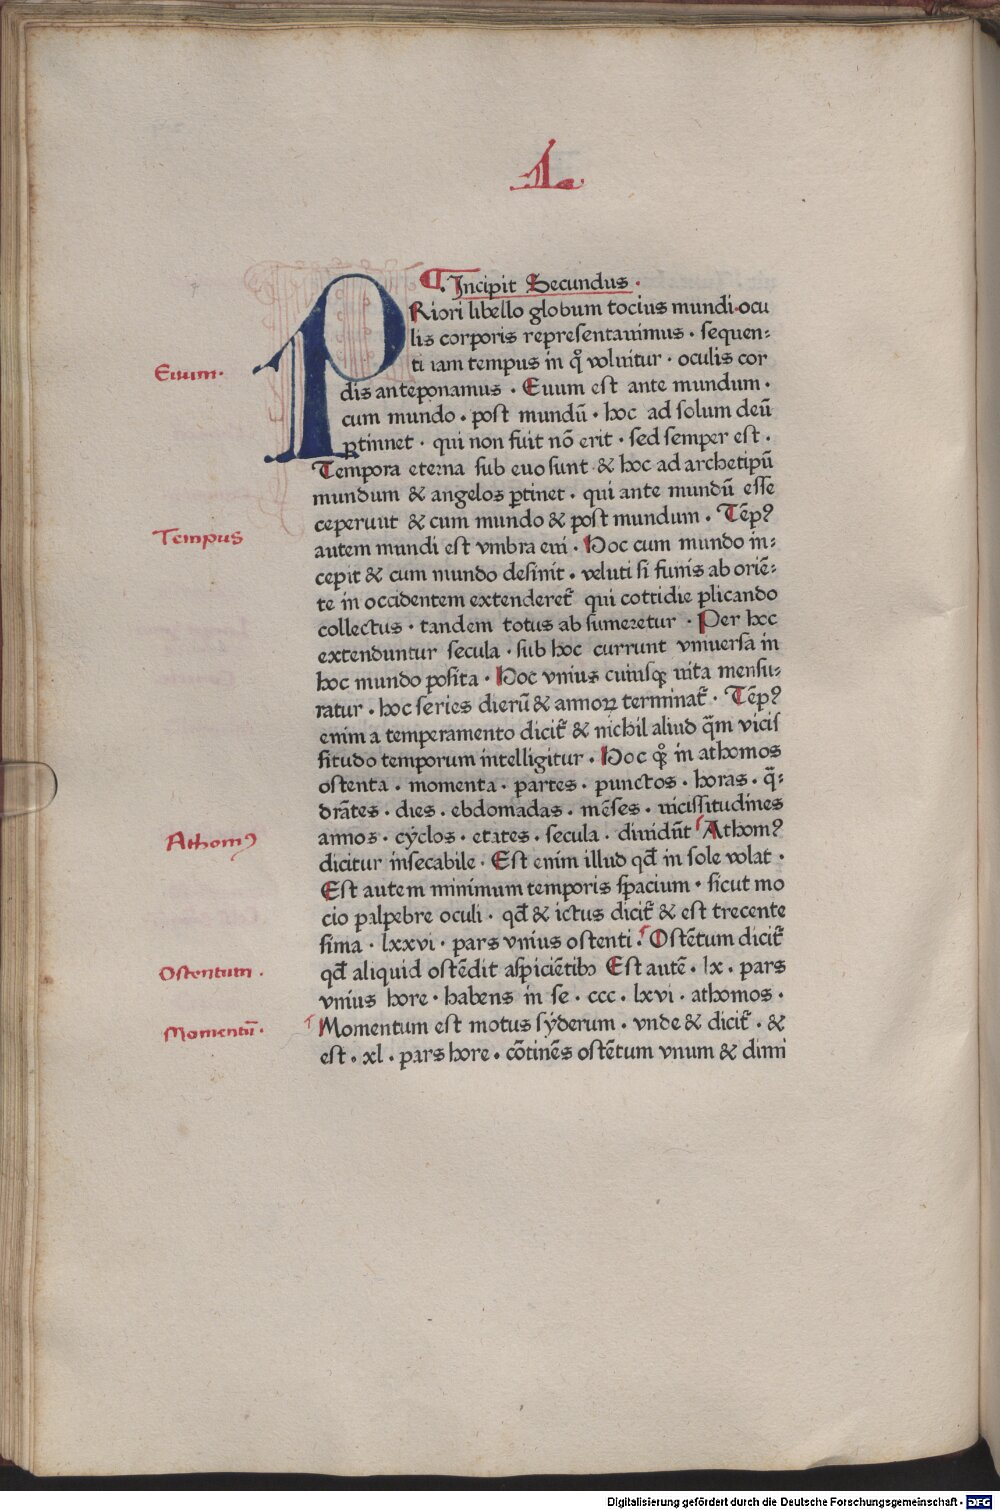 1.
¶. Incipit Secundus.
PRiori libello globum tocius mundi ocu
lis corporis representauimus. sequen:
ti iam tempus in qͦ voluitur. oculis cor
dis anteponamus. Euum est ante mundum.
cum mundo. post mundū. hoc ad solum deū
ꝑtinnet. qui non fuit nō erit. sed semper est.
Tempora eterna sub euo sunt & hoc ad archetipū
mundum & angelos ꝑtinet. qui ante mundū esse
ceperunt & cum mundo & post mundum. Tēpꝰ
autem mundi est vmbra eui. Hoc cum mundo in:
cepit & cum mundo desinit. veluti si funis ab oriē:
te in occidentem extenderet᷑ qui cottidie plicando
collectus. tandem totus ab sumeretur. Per hoc
extenduntur secula. sub hoc currunt vniuersa in
hoc mundo posita. Hoc vnius cuiusqꝫ uita mensu:
ratur. hoc series dierū & annoꝝ terminat᷑. Tēpꝰ
enim a temperamento dicit᷑ & nichil aliud q̄m vicis
situdo temporum intelligitur. Hoc qͦ in athomos
ostenta. momenta. partes. punctos. horas. q̄:
drātes. dies. ebdomadas. mēses. uicissitudines
annos. cyclos. etates. secula. diuidūt Athomꝰ
dicitur insecabile. Est enim illud qd̄ in sole volat.
Est autem minimum temporis spacium. sicut mo
cio palpebre oculi. qd̄ & ictus dicit᷑ & est trecente
sima. lxxvi. pars vnius ostenti. Ostētum dicit᷑
qd̄ aliquid ostēdit aspiciētibꝫ Est autē. lx. pars
vnius hore. habens in se. ccc. lxvi. athomos.
Momentum est motus syderum. vnde & dicit᷑. &
est. xl. pars hore. cōtinēs ostētum vnum & dimi
Euum.
Tempus
Athomꝰ
Ostentum.
Momentū.
Digitalisierung gefördert durch die Deutsche Forschungsgemeinschaft - DFG